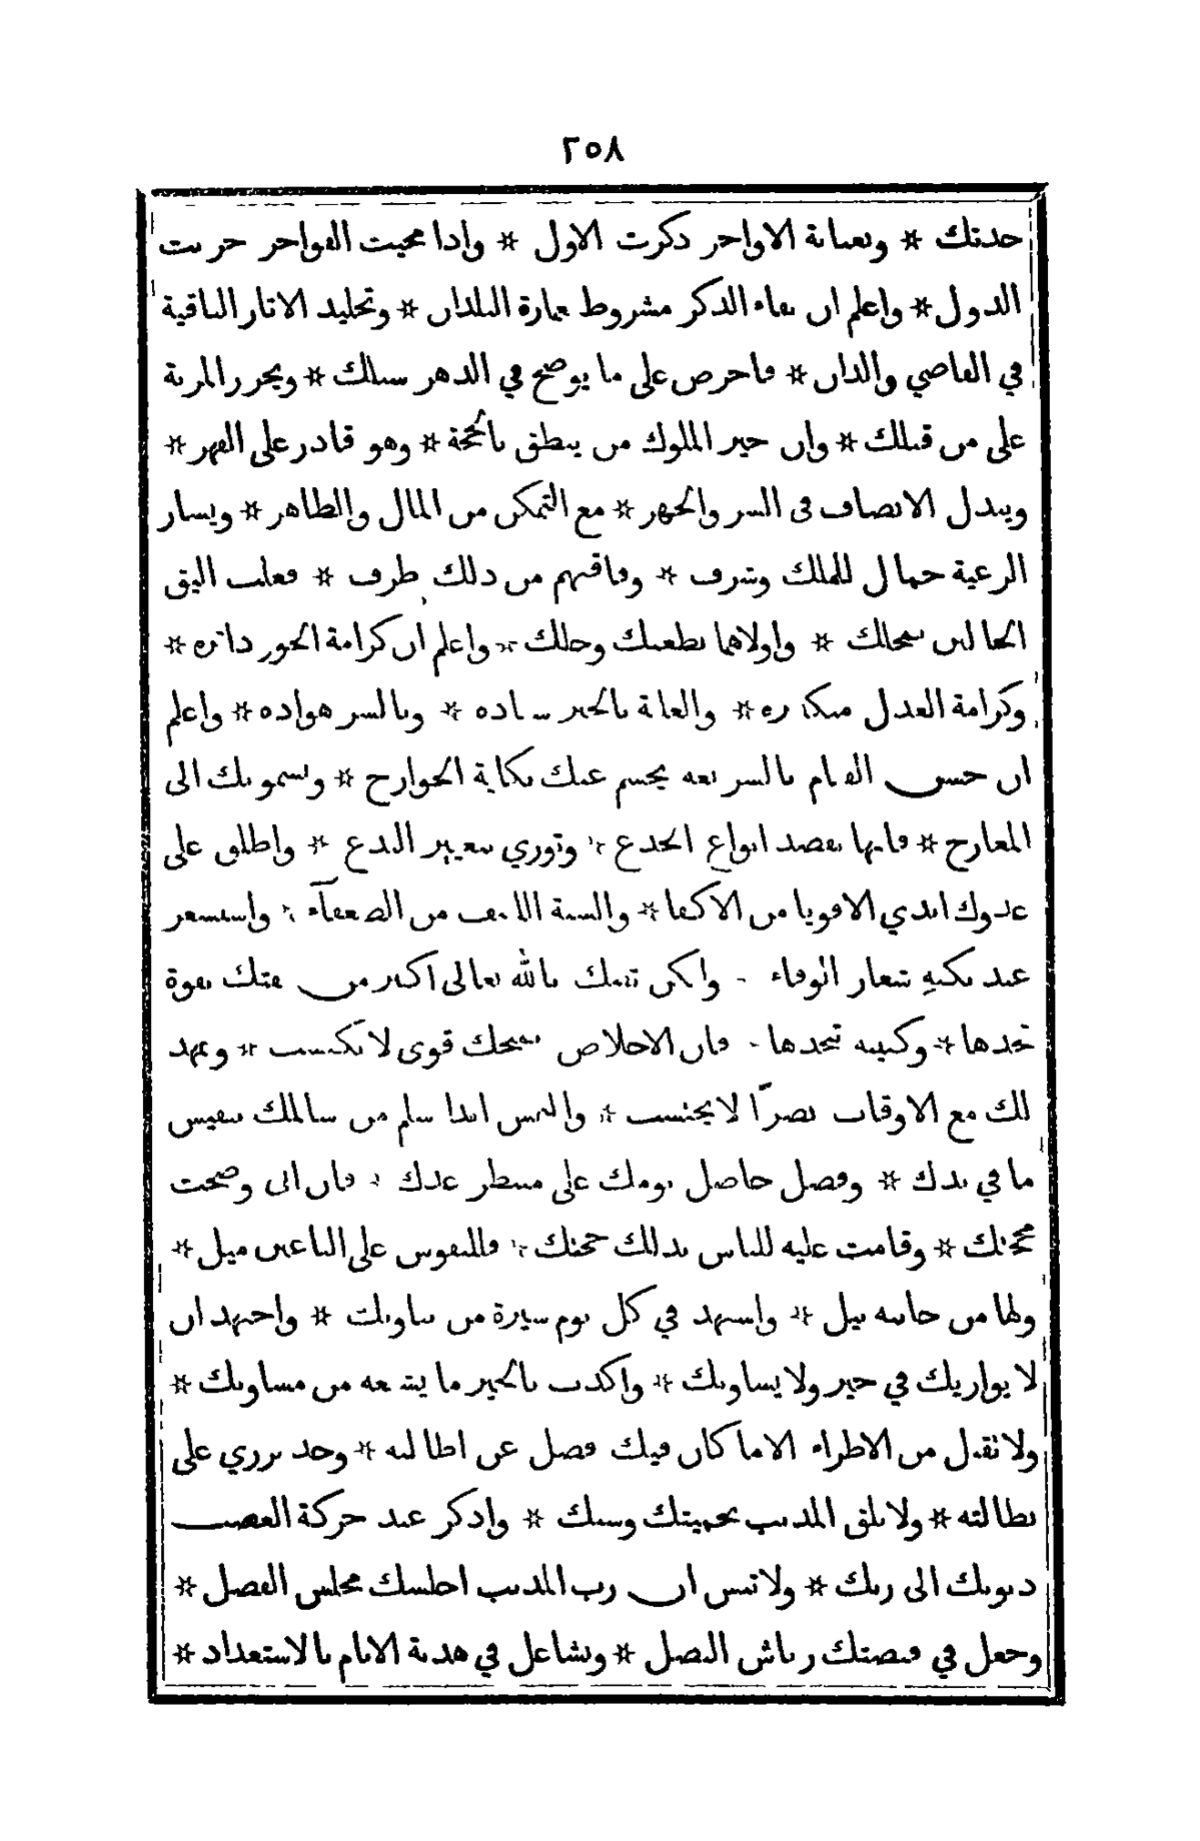 ٢٥٨
خدمتك * وبعناية الاواخر ذكرت الاول * واذا محيت المفاخر خربت
الدول * واعلم ان بقاء الذكر مشروط بعمارة البلدان * وتخليد الاثار الباقية
في القاصي والدان * فاحرص على ما يوضح في الدهر سبلك * ويحرز المزية
على من قبلك * وان خير الملوك من ينطق بالحجة * وهو قادر على القهر *
ويبذل الانصاف في السر والجهر * مع التمكن من المال والظاهر * ويسار
الرعية جمال للملك وشرف * وفاقتهم من ذلك طرف * فغلب اليق
الحالين بمحلك * واولاهما بظعنك وحلك * واعلم ان كرامة الجور دائره *
وكرامة العدل متكاثره * والغلبة بالخير سياده * وبالشر هواده * واعلم
ان حسن القيام بالشريعة يحسم عنك نكاية الخوارج * ويسمو بك الى
المعارج * فانها تقصد انواع الخدع * وتوري بتغيير البدع * واطلق على
عدوك ايدي الاقويا من الاكفا * والسنة اللفيف من الضعفآء * واستشعر
عند نكثه شعار الوفاء * ولتكن ثقتك بالله تعالى اكثر من ثقتك بقوة
تجدها * وكتيبة تنجدها * فان الاخلاص يمنحك قوى لا تكتسب * ويمهد
لك مع الاوقات نصرًا لا يحتسب * والتمس ابدا سلم من سالمك بنفيس
ما في يدك * وفضل حاصل يومك على منتظر غدك * فان ابى وضحت
محجتك * وقامت عليه للناس بذلك حجتك * فللنفوس على الباغي ميل *
ولها من جانبه نيل * واستهد في كل يوم سيرة من يناويك * واجتهد ان
لا يوازيك في خير ولا يساويك * واكذب بالخير ما يشيعه من مساويك *
ولا تقبل من الاطراء الا ما كان فيك فضل عن اطالته * وجد يزري على
بطالته * ولا تلق المذنب بحميتك وسبك * واذكر عند حركة الغضب
ذنوبك الى ربك * ولا تنس ان رب المذنب اجلسك مجلس الفصل *
وجعل في قبضتك رياش النصل * وتشاغل في هدنة الايام بالاستعداد *